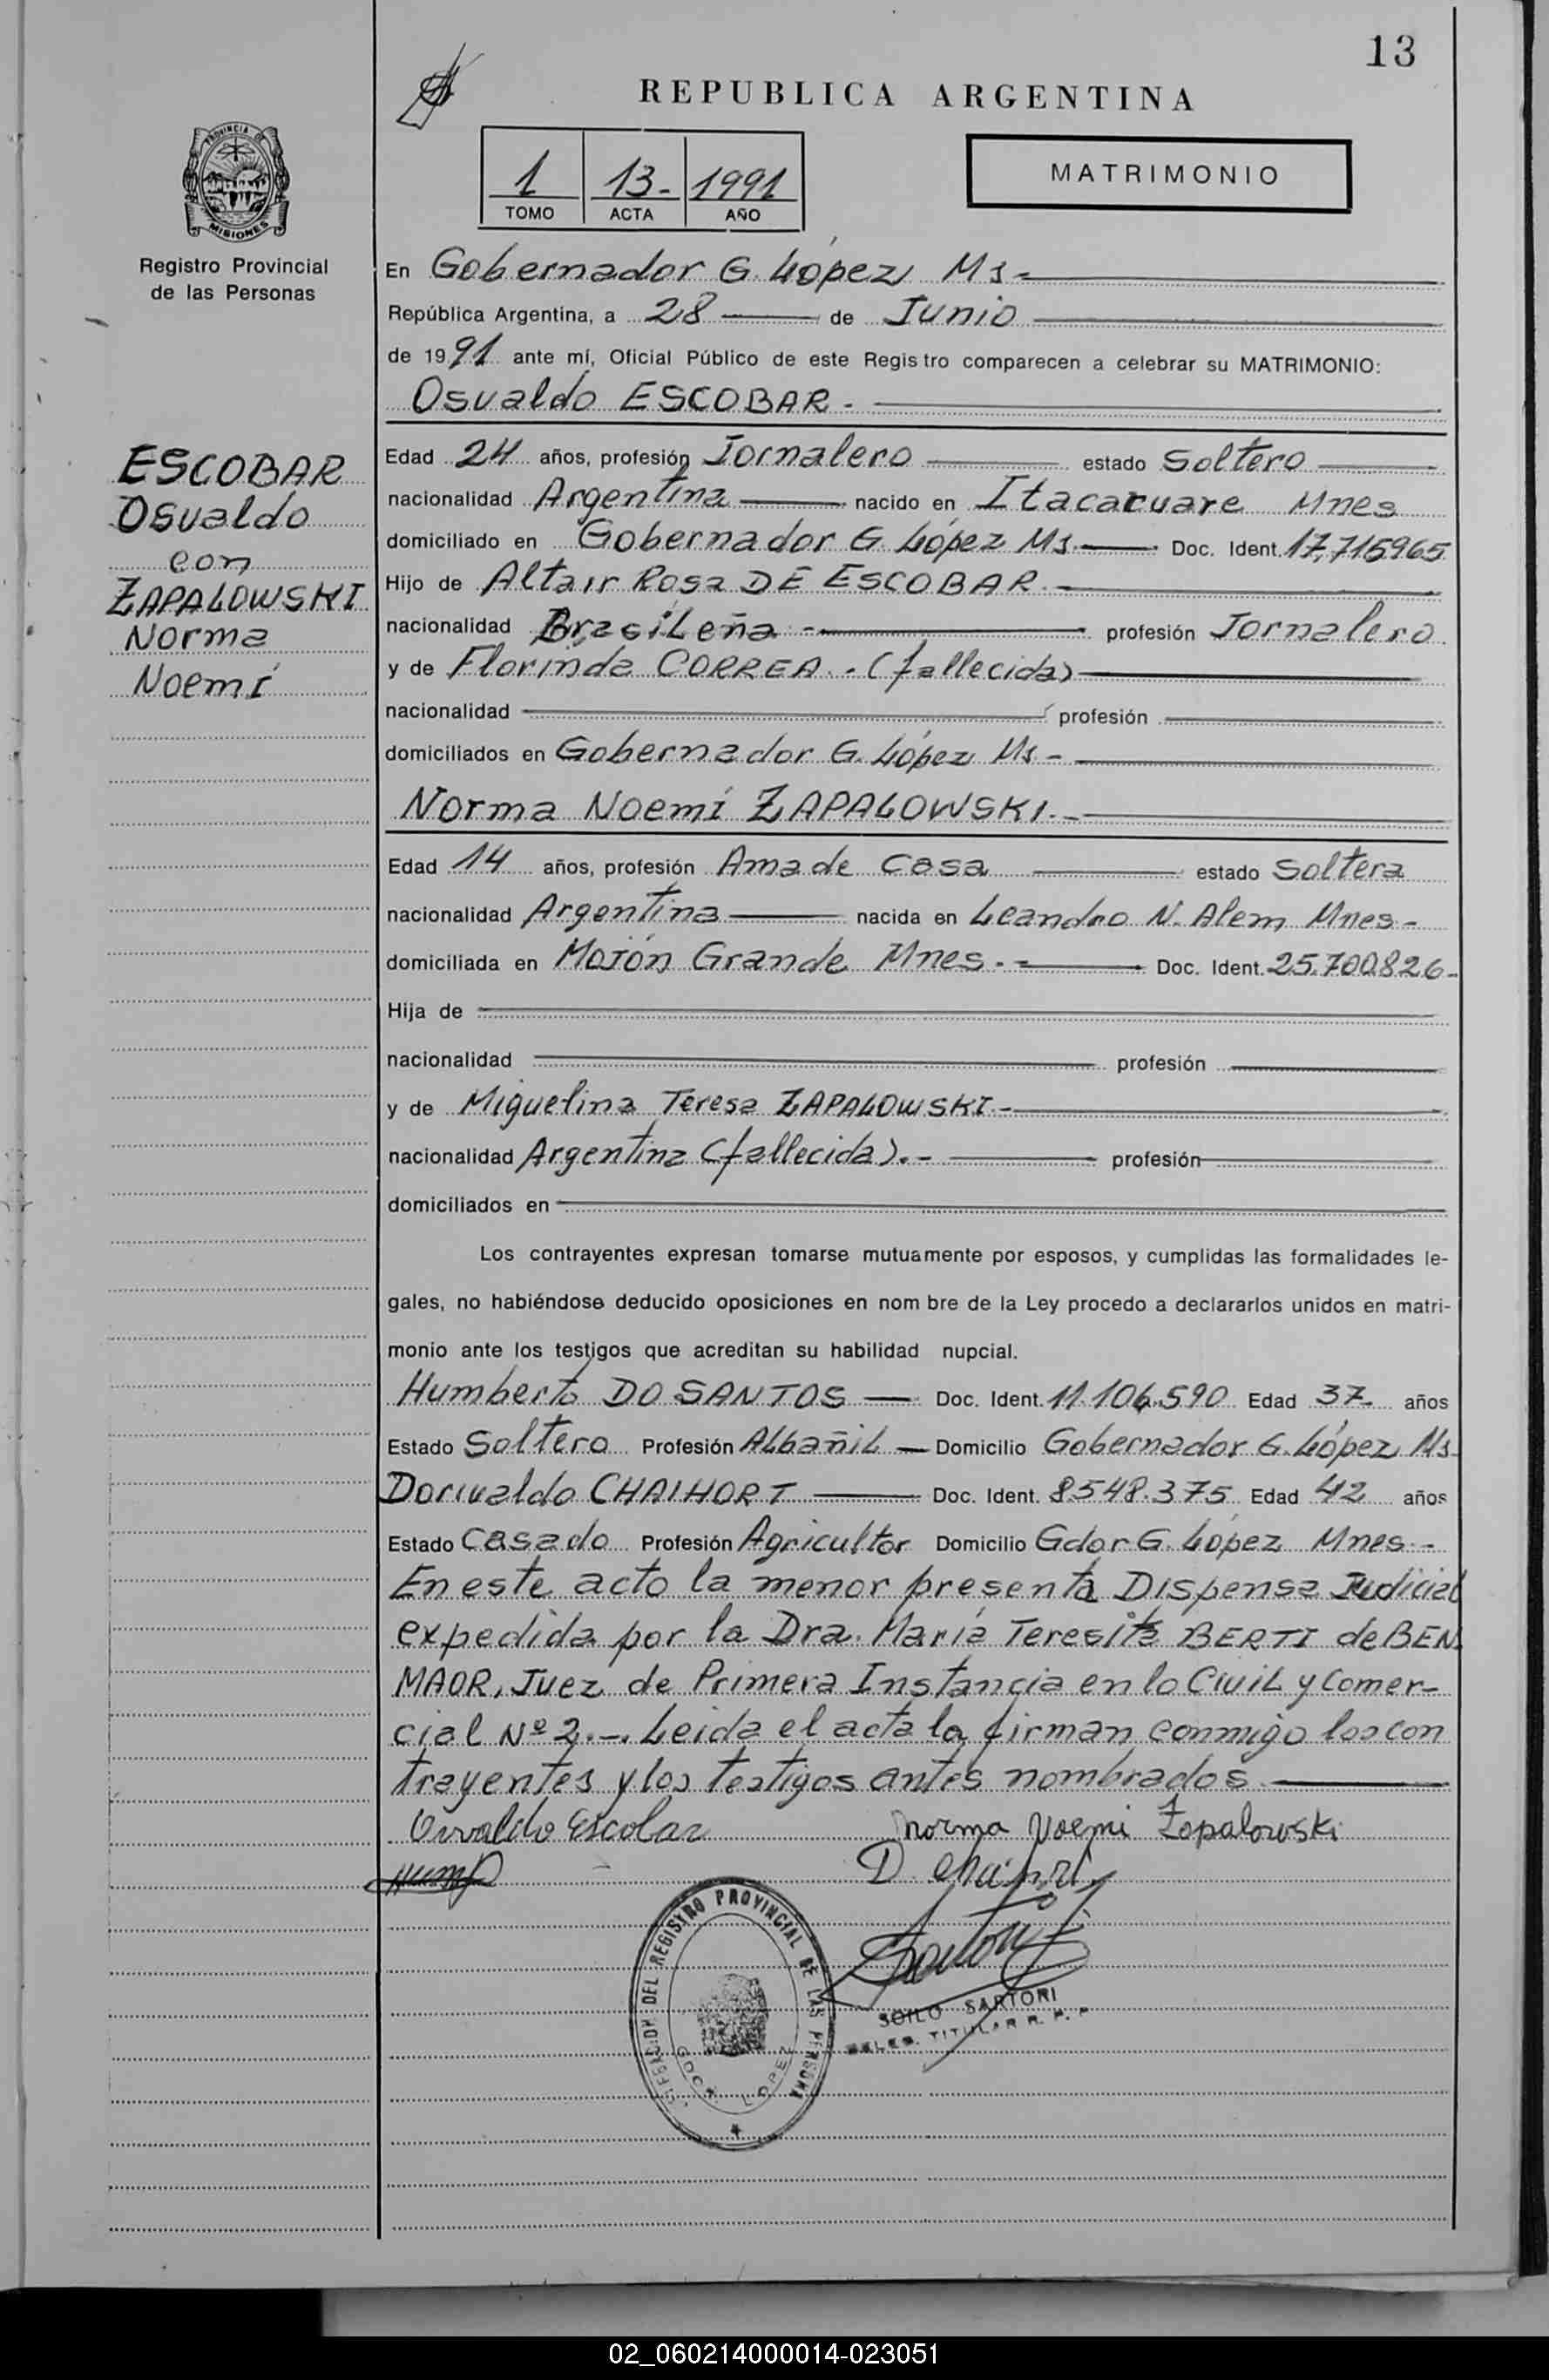 13
REPUBLICA ARGENTINA
1 13- 1991
TOMO ACTA AÑO
MATRIMONIO
PROVINCIA DE
MISIONES
Registro Provincial
de las Personas
En Gobernador G. López Ms-
República Argentina, a 28 de Junio
de 1991 ante mí, Oficial Público de este Registro comparecen a celebrar su MATRIMONIO:
Osvaldo ESCOBAR.-
ESCOBAR
Osvaldo
con
ZAPALOWSKI
Norma
Noemí
Edad 24 años, profesión Jornalero estado Soltero
nacionalidad Argentina nacido en Itacaruare Mnes
domiciliado en Gobernador G. López Ms. Doc. Ident. 17.715965
Hijo de Altair Rosa DE ESCOBAR.-
nacionalidad Brasileña.- profesión Jornalero
y de Florinda CORREA.- (fallecida)
nacionalidad profesión
domiciliados en Gobernador G. López Ms-
Norma Noemí ZAPALOWSKI.-
Edad 14 años, profesión Ama de Casa estado Soltera
nacionalidad Argentina nacida en Leandro N. Alem Mnes-
domiciliada en Mojón Grande Mnes.- Doc. Ident. 25.700.826-
Hija de
nacionalidad profesión
y de Miguelina Teresa ZAPALOWSKI-
nacionalidad Argentina (fallecida).- profesión
domiciliados en
Los contrayentes expresan tomarse mutuamente por esposos, y cumplidas las formalidades le-
gales, no habiéndose deducido oposiciones en nombre de la Ley procedo a declararlos unidos en matri-
monio ante los testigos que acreditan su habilidad nupcial.
Humberto DO SANTOS Doc. Ident. 11.106.590 Edad 37 años
Estado Soltero Profesión Albañil Domicilio Gobernador G. López Ms
Dorivaldo CHAIHORT Doc. Ident. 8548.375 Edad 42 años
Estado Casado Profesión Agricultor Domicilio Gdor G. López Mnes.-
En este acto la menor presenta Dispensa Judicial
expedida por la Dra. María Teresita BERTI de BEN
MAOR, Juez de Primera Instancia en lo Civil y Comer-
cial Nº 2.-. Leida el acta la firman conmigo los con
trayentes y los testigos antes nombrados
Osvaldo Escobar Norma Noemi Zapalowski
D.
REGISTRO PROVINCIAL DE LAS
LOPEZ
SOILO SARTORI
TITULAR R. P. P
02_060214000014-023051